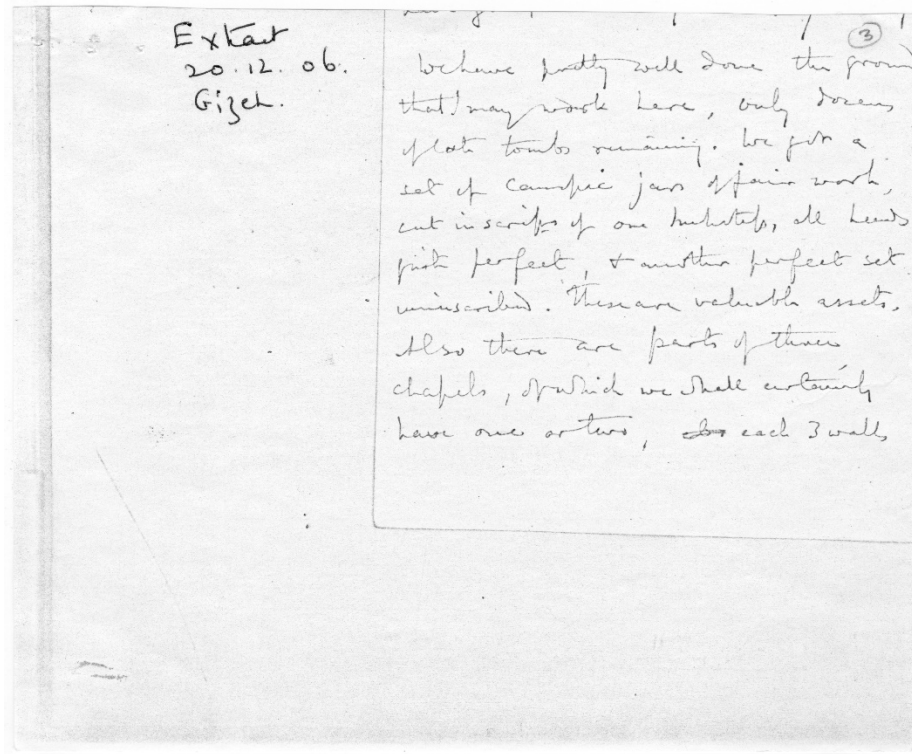 Extract
20.12.06.
Gizeh.
3
We have pretty well done the groun
that I may work here, only dozens
of late tombs remaining. We got a
set of Canopic jars of fair work,
cut inscrips of one, all heads
quite perfect, & another perfect set
uninscribed. These are valuable assets.
Also there are parts of three
chapels, of which we shall certainly
have one or two, each 3 walls